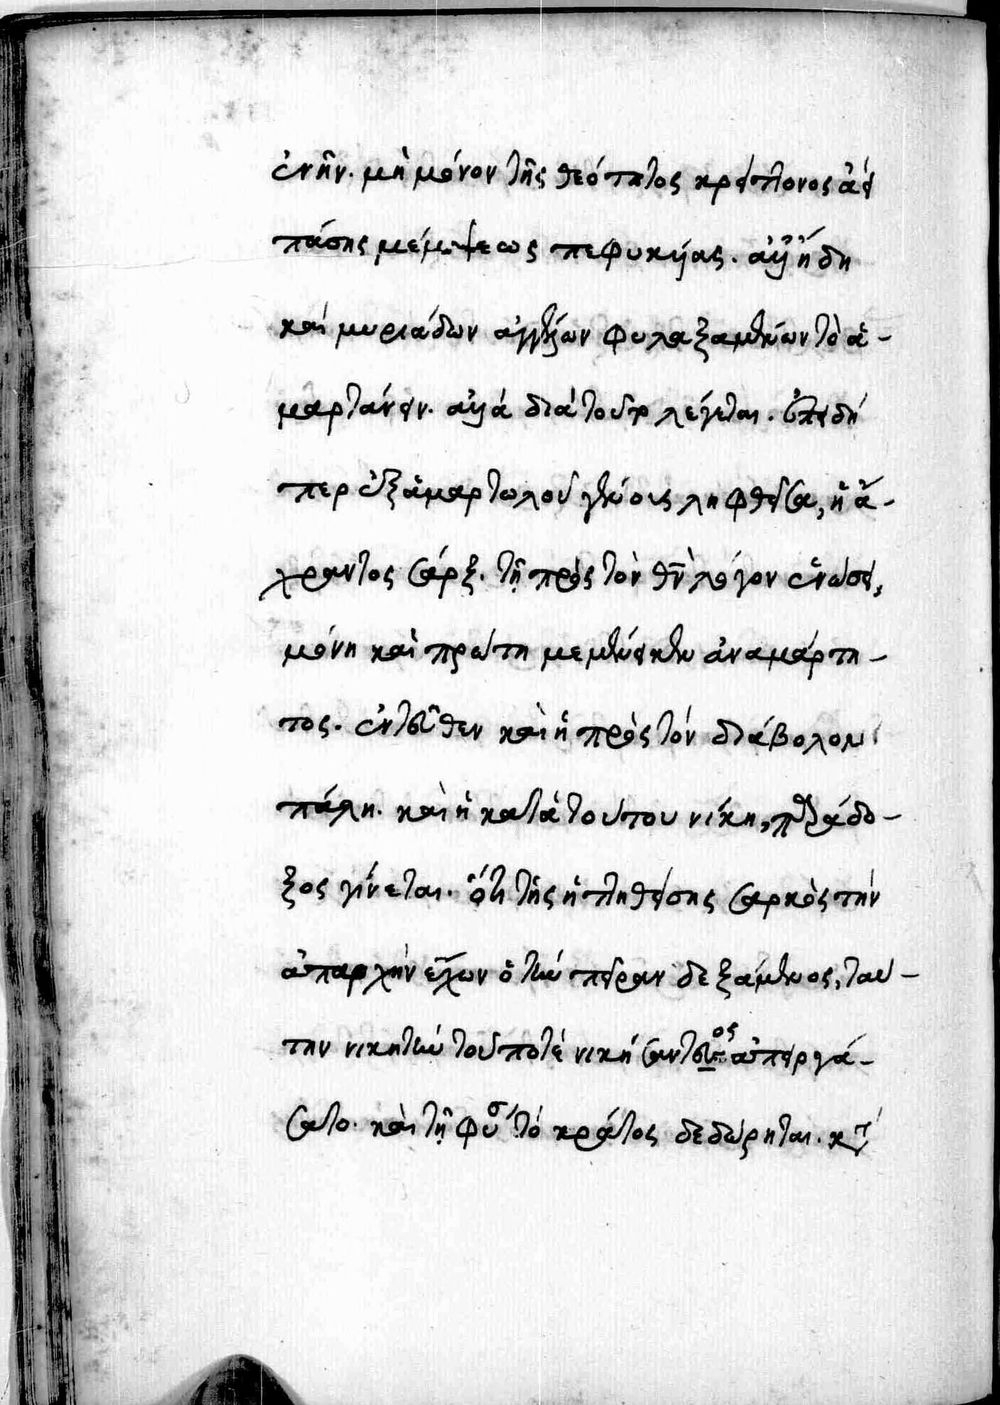 ἐνῆν. μὴ μόνον τῆς θεότητος κρείττονος ἀεὶ
πάσης μέμψεως πεφυκυίας. ἀλλ' ἤδη
καὶ μυριάδων ἀγγέλων φυλαξαμένων τὸ ἁ-
μαρτάνειν. ἀλλὰ διὰ τοῦτο λέγεται. ἐπειδή
περ ἐξ ἁμαρτωλοῦ γένους ληφθεῖσα, ἡ ἄ-
χραντος σάρξ. τῇ πρὸς τὸν θν λόγον ἑνώσει,
μόνη καὶ πρώτη μεμένηκεν ἀναμάρτη-
τος. ἐντεῦθεν καὶ ἡ πρὸς τὸν διάβολον
πάλη. καὶ ἡ κατὰ τούτου νίκη, παράδο-
ξος γίνεται. ὅτι τῆς ἡττηθείσης σαρκὸς τὴν
ἀπαρχὴν ἔχων ὁ τὴν πεῖραν δεξάμενος, ταύ-
την νικητὴν τοῦ ποτὲ νικήσαντος ἀπειργά-
σατο. καὶ τῇ φύσ τὸ κράτος δεδώρηται.